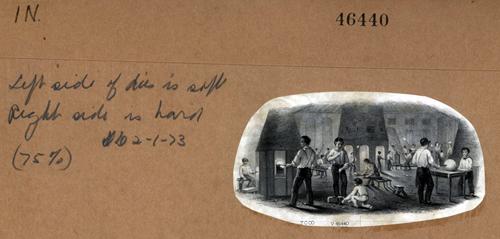 IN.
46440
Left side of die is soft
Right side is hard
2-1-73
(75%)
V 46440